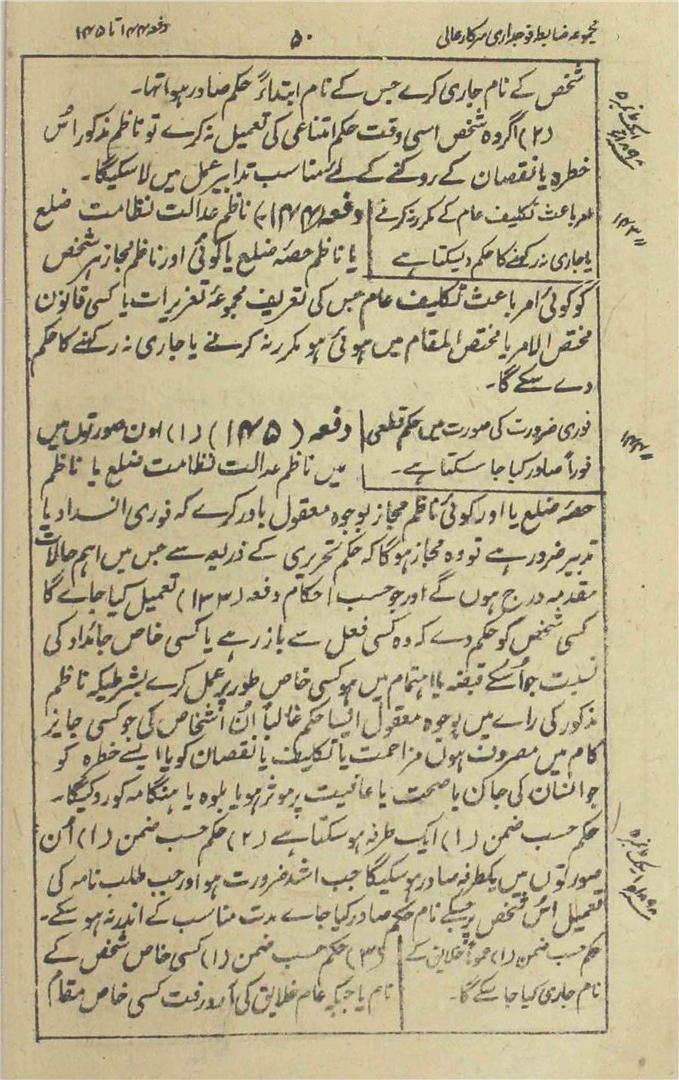 مجموعہ ضابطہ فوجداری سرکار عالی
۵۰
دفعہ ۱۴۴ تا ۱۴۵
شخص کے نام جاری کرے جس کے نام ابتداءً حکم صادر ہوا تھا۔
(۲) اگر وہ شخص اسی وقت حکم امتناعی کی تعمیل نہ کرے تو ناظم مذکور اُس
خطرہ یا نقصان کے روکنے کے لئے مناسب تدابیر عمل میں لا سکیگا۔
امر باعث تکلیف عام کے مکرر نہ کرنے
یا جاری نہ رکھنے کا حکم دیسکتا ہے
دفعہ (۱۴۴) ناظم عدالت نظامت ضلع
یا ناظم حصۂ ضلع یا کوئی اور ناظم مجاز ہر شخص
کو کوئی امر باعث تکلیف عام جس کی تعریف مجموعۂ تعزیرات یا کسی قانون
مختص الامر یا مختص المقام میں ہوئی ہو مکرر نہ کرنے یا جاری نہ رکھنے کا حکم
دے سکے گا۔
فوری ضرورت کی صورت میں حکم قطعی
فوراً صادر کیا جا سکتا ہے۔
دفعہ (۱۴۵) (۱) اون صورتوں میں
میں ناظم عدالت نظامت ضلع یا ناظم
حصۂ ضلع یا اور کوئی ناظم مجاز بوجوہ معقول باور کرے کہ فوری انسداد یا
تدبیر ضرور ہے تو وہ مجاز ہوگا کہ حکم تحریری کے ذریعہ سے جس میں اہم حالات
مقدمہ درج ہوں گے اور جو حسب احکام دفعہ (۱۳۳) تعمیل کیا جاے گا
کسی شخص کو حکم دے کہ وہ کسی فعل سے باز رہے یا کسی خاص جائداد کی
نسبت جو اُسکے قبضہ یا اہتمام میں ہو کسی خاص طور پر عمل کرے بشرطیکہ ناظم
مذکور کی راے میں بوجوہ معقول ایسا حکم غالباً اُن اشخاص کی جو کسی جایز
کام میں مصروف ہوں مزاحمت یا تکلیف یا نقصان کو یا ایسے خطرہ کو
جو انسان کی جان یا صحت یا عافیت پر موثر ہو یا بلوہ یا ہنگامہ کو روکیگا۔
حکم حسب ضمن (۱) ایک طرفہ ہو سکتا ہے (۲) حکم حسب ضمن (۱) اُن
صورتوں میں یکطرفہ صادر ہو سکیگا جب اشد ضرورت ہو اور جب طلب نامہ کی
تعمیل اُس شخص پر جسکے نام حکم صادر کیا جاے مدت مناسب کے اندر نہ ہو سکے۔
حکم حسب ضمن (۱) عموماً خلایق کے
نام جاری کیا جا سکے گا۔
(۳) حکم حسب ضمن (۱) کسی خاص شخص کے
نام یا جبکہ عام خلایق کی آمد و رفت کسی خاص مقام